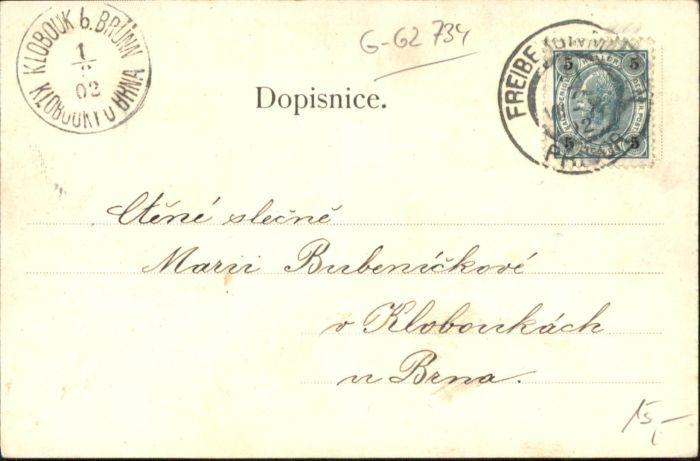 KLOBOUK b. BRÜNN
1
02
KLOBOUKY U BRNA
G-G2 734
Dopisnice.
5 HELLER 5
5 5
Ctěné slečně
Marii Bubeníčkové
v Kloboukách
u Brna.